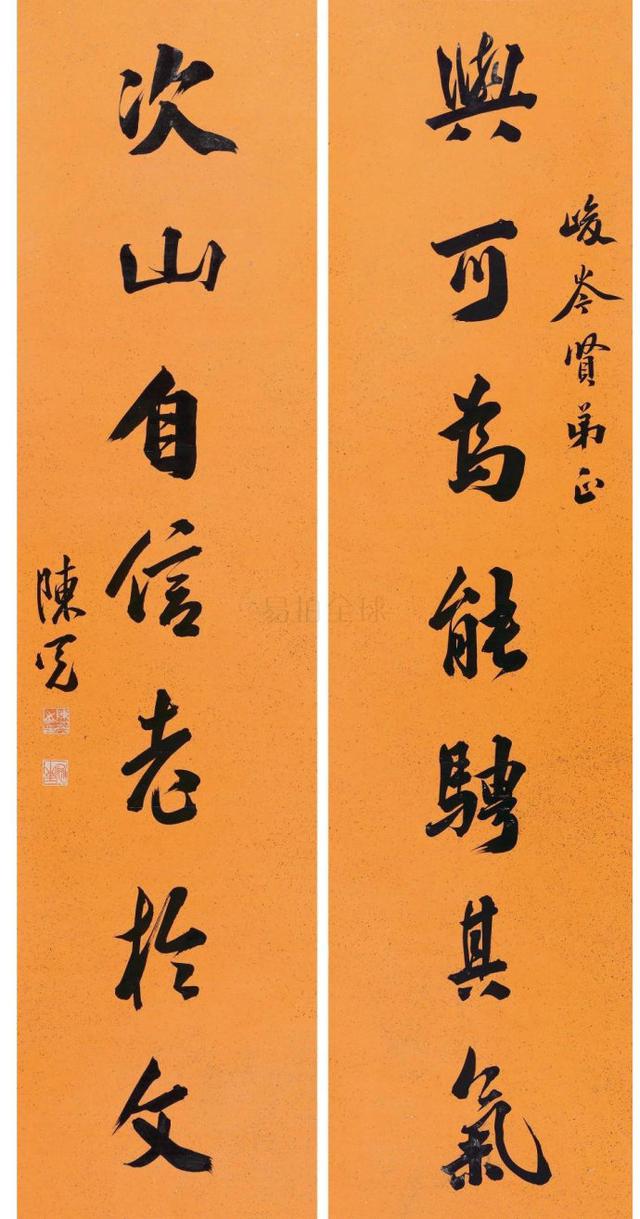 峻岑賢弟正
與可為能騁其氣
次山自信老於文
陳冕
易拍全球